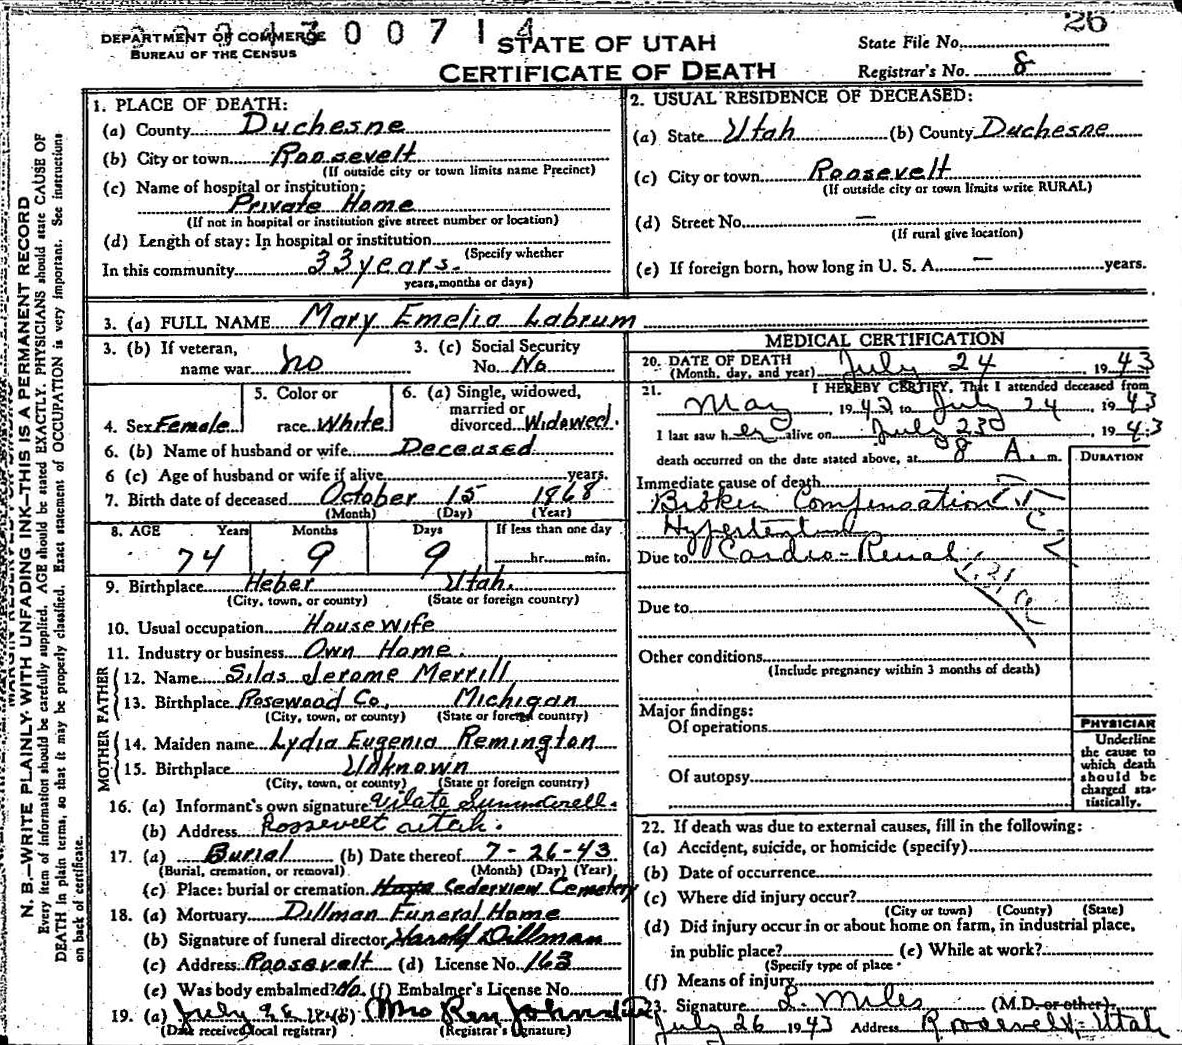 26
004300714
DEPARTMENT OF COMMERCE
BUREAU OF THE CENSUS
STATE OF UTAH
CERTIFICATE OF DEATH
State File No.
Registrar's No. 8
N. B.—WRITE PLAINLY WITH UNFADING INK—THIS IS A PERMANENT RECORD
Every item of information should be carefully supplied. AGE should be stated EXACTLY. PHYSICIANS should state CAUSE OF
DEATH in plain terms, so that it may be properly classified. Exact statement of OCCUPATION is very important. See instructions
on back of certificate.
1. PLACE OF DEATH:
(a) County Duchesne
(b) City or town Roosevelt
(If outside city or town limits name Precinct)
(c) Name of hospital or institution:
Private Home
(If not in hospital or institution give street number or location)
(d) Length of stay: In hospital or institution
(Specify whether
In this community 33 years.
years, months or days)
2. USUAL RESIDENCE OF DECEASED:
(a) State Utah (b) County Duchesne
(c) City or town Roosevelt
(If outside city or town limits write RURAL)
(d) Street No. —
(If rural give location)
(e) If foreign born, how long in U. S. A. — years.
3. (a) FULL NAME Mary Emelia Labrum
3. (b) If veteran, name war no
3. (c) Social Security No. No
4. Sex Female
5. Color or race White
6. (a) Single, widowed, married or divorced Widowed.
6. (b) Name of husband or wife Deceased
6 (c) Age of husband or wife if alive years.
7. Birth date of deceased October 15 1868
(Month) (Day) (Year)
8. AGE Years Months Days If less than one day
74 9 9 hr. min.
9. Birthplace Heber Utah.
(City, town, or county) (State or foreign country)
10. Usual occupation Housewife
11. Industry or business Own Home
FATHER
12. Name Silas Jerome Merrill
13. Birthplace Rosewood Co, Michigan
(City, town, or county) (State or foreign country)
MOTHER
14. Maiden name Lydia Eugenia Remington
15. Birthplace Unknown
(City, town, or county) (State or foreign country)
16. (a) Informant's own signature Vilate
(b) Address Roosevelt Utah.
17. (a) Burial (b) Date thereof 7-26-43
(Burial, cremation, or removal) (Month) (Day) (Year)
(c) Place: burial or cremation Cedarview Cemetery
18. (a) Mortuary Dillman Funeral Home
(b) Signature of funeral director Harold Dillman
(c) Address Roosevelt (d) License No. 163
(e) Was body embalmed? No. (f) Embalmer's License No.
19. (a) July (b) Mrs Ray
(Date received local registrar) (Registrar's signature)
MEDICAL CERTIFICATION
20. DATE OF DEATH July 24 1943
(Month, day, and year)
21. I HEREBY CERTIFY, That I attended deceased from
May, 1942 to July 24 1943
I last saw her alive on July 23d 1943
death occurred on the date stated above, at 8 A. m.
DURATION
Immediate cause of death
Broken Compensation
Due to Cardio-Renal
Due to
Other conditions
(Include pregnancy within 3 months of death)
Major findings:
Of operations
Of autopsy
PHYSICIAN
Underline
the cause to
which death
should be
charged sta-
tistically.
22. If death was due to external causes, fill in the following:
(a) Accident, suicide, or homicide (specify)
(b) Date of occurrence
(c) Where did injury occur?
(City or town) (County) (State)
(d) Did injury occur in or about home on farm, in industrial place,
in public place? (e) While at work?
(Specify type of place
(f) Means of injury
23. Signature L. Miles (M.D. or other)
July 26 1943 Address Roosevelt, Utah